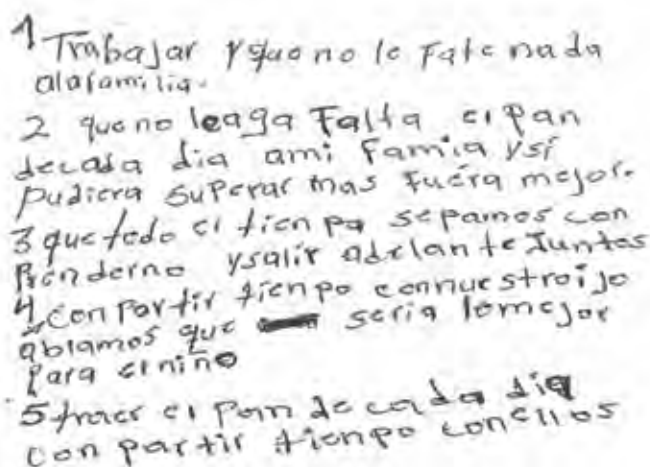 1 Trabajar y que no le Fate nada
alafamilia.
2 que no leaga Falta el Pan
decada dia ami Famia ysi
Pudiera superar mas Fuera mejor.
3 que todo el tienpo sepamos con
Prenderno ysalir adelante Juntos
4, conPortir tienpo connuestroijo
ablamos que seria lomejor
Para el niño
5 traer el Pan de cada dia
con partir tienpo conellos